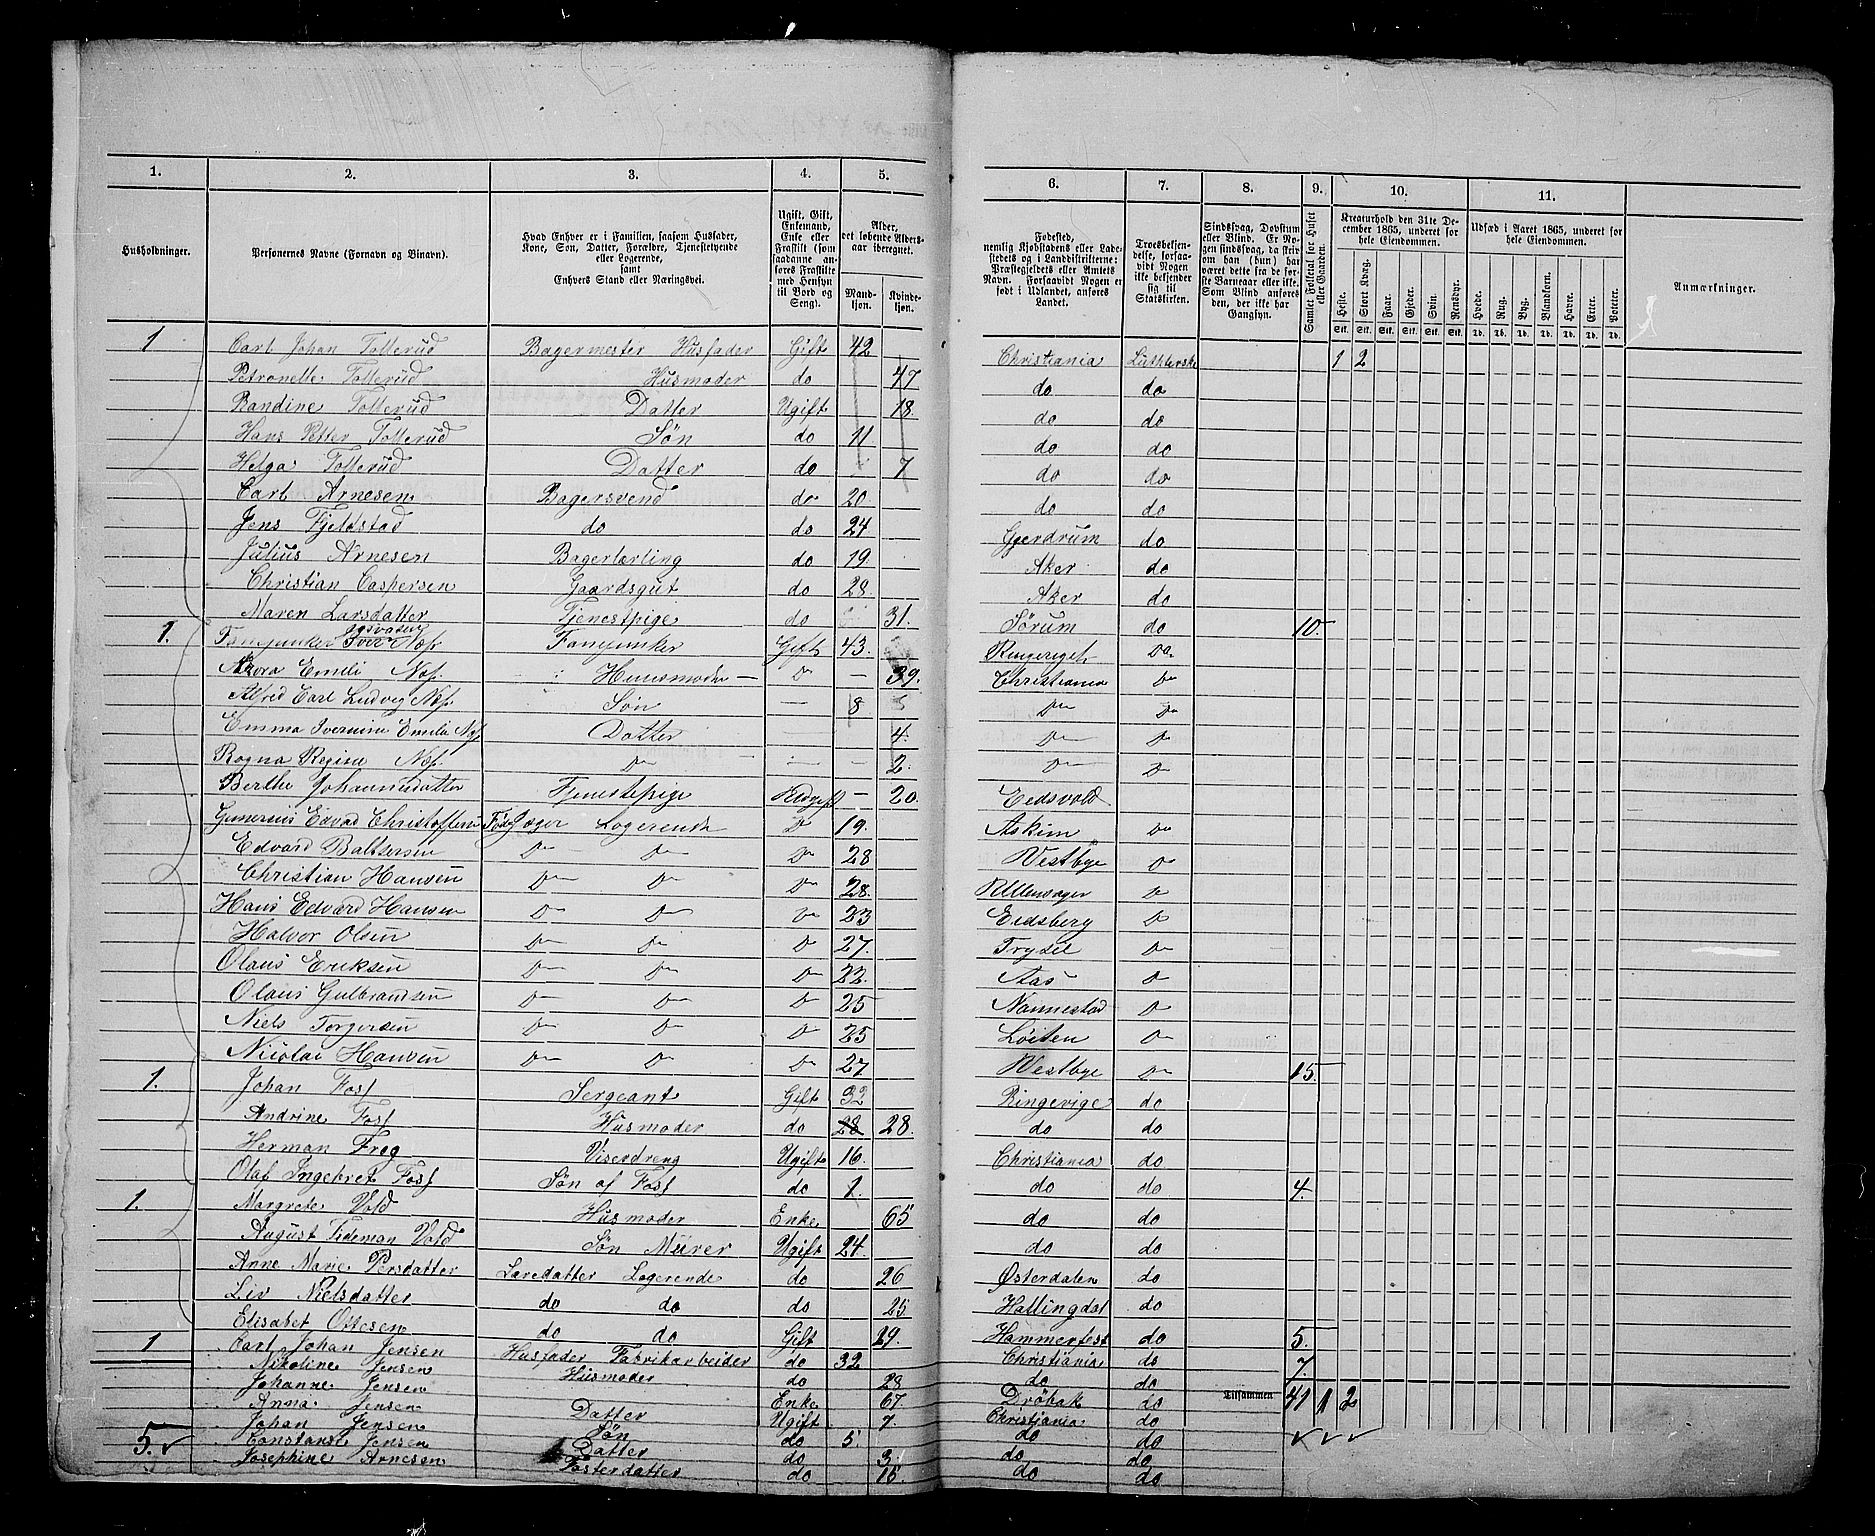 1. 2. 3. 4. 5. 6. 7. 8. 9. 10. 11.
Husholdninger.
Personernes Navne (Fornavn og Binavn).
Hvad Enhver er i Familien, saasom Husfader, Kone, Søn, Datter, Forældre, Tjenestetyende eller Logerende, samt Enhvers Stand eller Næringsvei.
Ugift, Gift, Enkemand, Enke eller Fraskilt (som saadanne anføres Fraskilte med Hensyn til Bord og Seng).
Alder, det løbende Alders-aar iberegnet.
Mandkjøn. Kvindekjøn.
Fødested, nemlig Kjøbstadens eller Ladestedets og i Landdistrikterne: Præstegjeldets eller Amtets Navn. Forsaavidt Nogen er født i Udlandet, anføres Landet.
Troesbekjendelse, forsaavidt Nogen ikke bekjender sig til Statskirken.
Sindssvag, Døvstum eller Blind. Er Nogen sindssvag, da skriv om han (hun) har været dette fra de første Barneaar eller ikke. Som Blind anføres den, der ikke har Gangsyn.
Samlet Folketal for Huset eller Gaarden.
Kreaturhold den 31te December 1865, underet for hele Eiendommen.
Heste. Stort Kvæg. Faar. Gjeder. Svin. Rensdyr.
Udsæd i Aaret 1865, underet for hele Eiendommen.
Hvede. Rug. Byg. Blandkorn. Havre. Erter. Poteter.
Anmærkninger.
1 Carl Johan Tollerud Bagermester Husfader Gift 42 Christiania Lutherske 1 2
Petronelle Tollerud Husmoder do 47 do do
Randine Tollerud Datter Ugift 18 do do
Hans Petter Tollerud Søn do 11 do do
Helga Tollerud Datter do 7 do do
Carl Arnesen Bagersvend do 20 do do
Jens Fjeldstad do do 24 Gjerdrum do
Julius Arnesen Bagerlærling do 19 Aker do
Christian Caspersen Gaardsgut do 28 Aker do
Maren Larsdatter Tjenestpige do 31. Sørum do 10.
1. Fanejunker Iver Næs Fanejunker Gift 43. Ringeriget Do
Emili Næs Huusmoder Do 39. Christiania Do
Alfred Carl Ludvig Næs Søn 8 Do Do
Emma Iverine Emilie Næs Datter 4. Do Do
Ragna Regine Næs Do 2. Do Do
Berthe Johannesdatter Tjenestepige Uugift 20. Eidsvold
Gunerius Edvard Christoffersen Logerende Do 19. Askim Do
Edvard Baltersen Do Do Do 28 Vestbye Do
Christian Hansen Do Do Do 28. Ullensager Do
Hans Edvard Hansen Do Do Do 23 Eidsberg Do
Halvor Olsen Do Do Do 27. Trysil Do
Olaus Eriksen Do Do Do 22. Aas Do
Olaus Gulbrandsen Do Do Do 25 Nannestad Do
Niels Torgersen Do Do Do 25 Løiten Do
Nicolai Hansen Do Do Do 27. Vestbye Do 15.
1. Johan Foss Sergeant Gift 32 Ringerige do
Andrine Foss Husmoder do 28 28. do do
Herman Freg Viserdreng Ugift 16. Christiania do
Olaf Ingebret Foss Søn af Foss do 1. do do 4.
1. Margrete Vold Husmoder Enke 65 do do
August Tideman Vold Søn Murer Ugift 24. do do
Anne Marie Persdatter Læredatter Logerende do 26 Østerdalen do
Liv Nielsdatter do do do 25 Hallingdal do
Elisabet Ottesen do do Gift 29. Hammerfest do 5.
1 Carl Johan Jensen Husfader Fabrikarbeider do 32 Christiania do 7.
Nikoline Jensen Husmoder do 28 do do
Johanne Jensen Enke 67. Drøbak do Tilsammen 41 1 2
Anna Jensen Datter Ugift 7. Christiania do
Johan Jensen Søn do 5 do do
5. Constanse Jensen Datter do 3. do do
Josephine Arnesen Fosterdatter do 15 do do